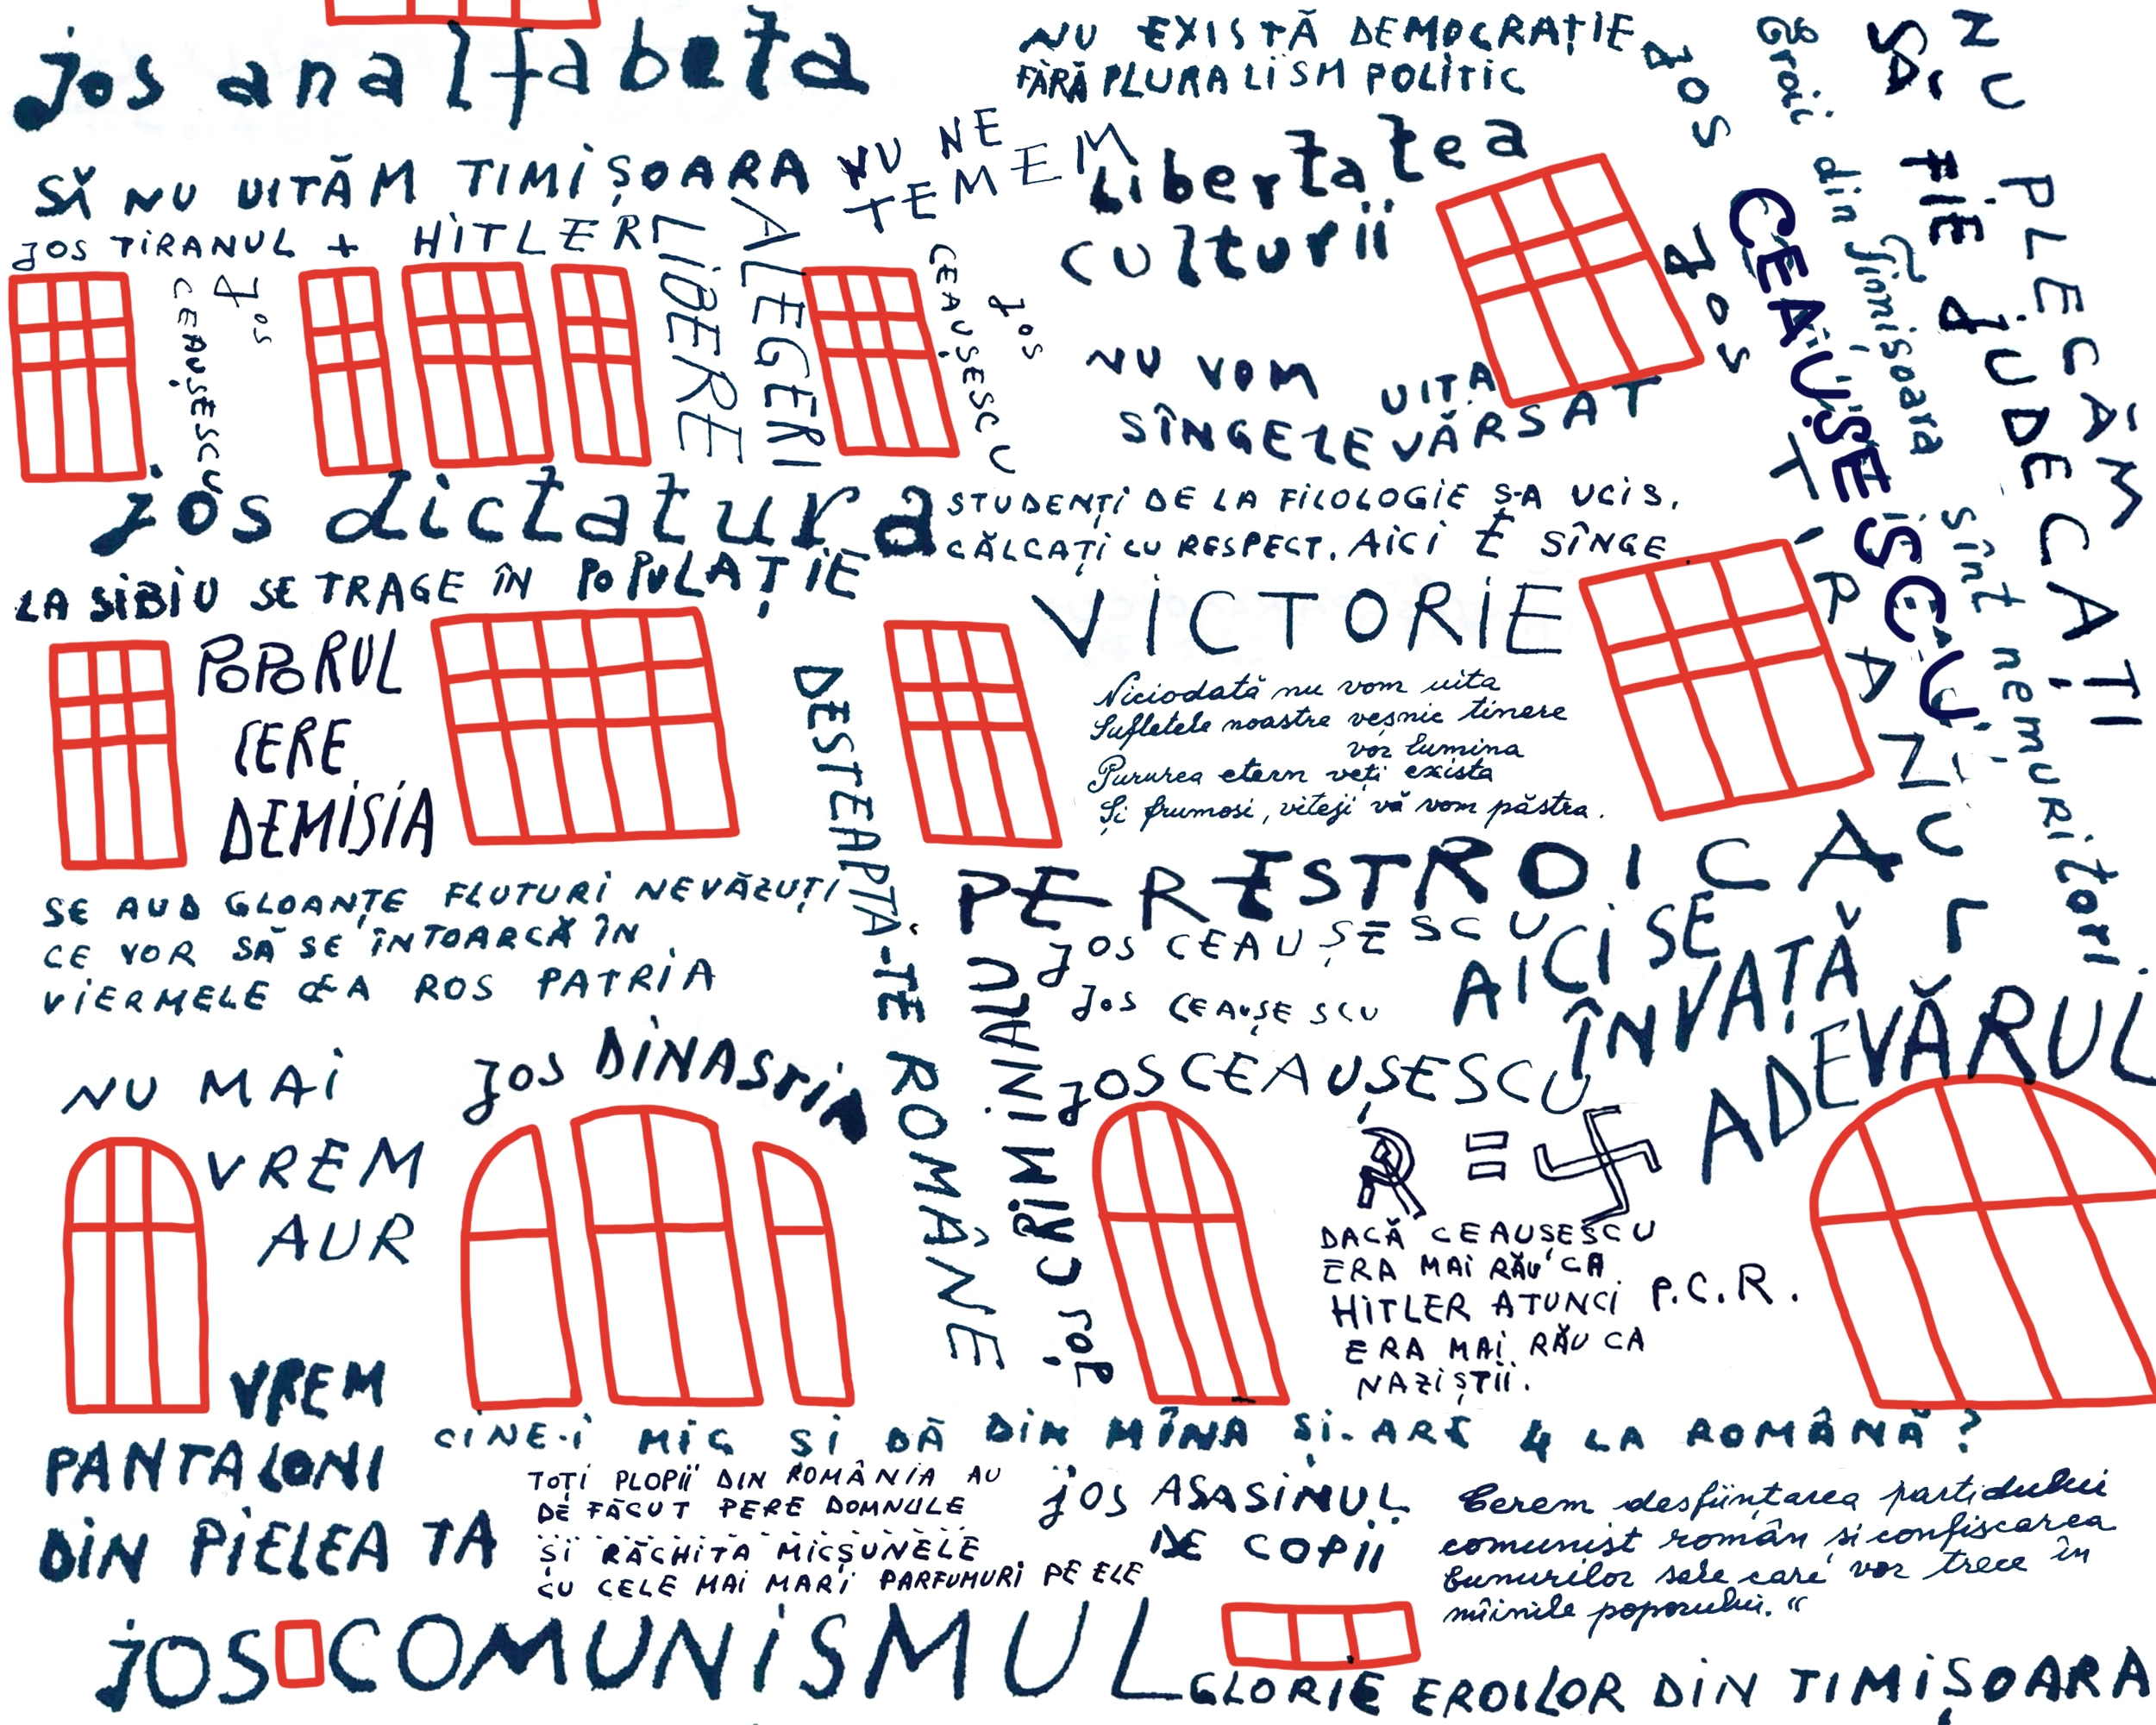 jos analfabeta
NU EXISTĂ DEMOCRAȚIE
FĂRĂ PLURALISM POLITIC
SĂ NU UITĂM TIMIȘOARA
NU NE
TEMEM
Libertatea
culturii
JOS TIRANUL + HITLER
JOS
CEAUȘESCU
ALEGERI
LIBERE
JOS
CEAUȘESCU
NU VOM UITA
SÎNGELE VĂRSAT
JOS
JOS
CEAUȘESCU
TIRANUL
Eroii din Timișoara sînt nemuritori.
SĂ FIE JUDECAT
NU PLECĂM
jos dictatura
STUDENȚI DE LA FILOLOGIE S-A UCIS.
CĂLCAȚI CU RESPECT. AICI E SÎNGE
LA SIBIU SE TRAGE ÎN POPULAȚIE
VICTORIE
POPORUL
CERE
DEMISIA
Niciodată nu vom uita
Sufletele noastre veșnic tinere
vor lumina
Pururea etern veți exista
Și frumosi, viteji vă vom păstra.
DEȘTEAPTĂ-TE ROMÂNE
PERESTROICA
SE AUD GLOANȚE FLUTURI NEVĂZUȚI
CE VOR SĂ SE ÎNTOARCĂ ÎN
VIERMELE CE-A ROS PATRIA
JOS CEAUȘESCU
JOS CEAUȘESCU
AICI SE
ÎNVAȚĂ
ADEVĂRUL
JOS CRIMINALU
NU MAI
VREM
AUR
JOS DINASTIA
JOS CEAUȘESCU
=
DACĂ CEAUȘESCU
ERA MAI RĂU CA
HITLER ATUNCI P.C.R.
ERA MAI RĂU CA
NAZIȘTII.
VREM
PANTALONI
DIN PIELEA TA
CINE-I MIC SI DĂ DIN MÎNĂ ȘI-ARE 4 LA ROMÂNĂ?
TOȚI PLOPII DIN ROMÂNIA AU
DE FĂCUT PERE DOMNULE
ȘI RĂCHITA MICȘUNELE
CU CELE MAI MARI PARFUMURI PE ELE
JOS ASASINUL
DE COPII
Cerem desființarea partidului
comunist român, si confiscarea
bunurilor sale care vor trece în
mîinile poporului."
JOS COMUNISMUL
GLORIE EROILOR DIN TIMIȘOARA